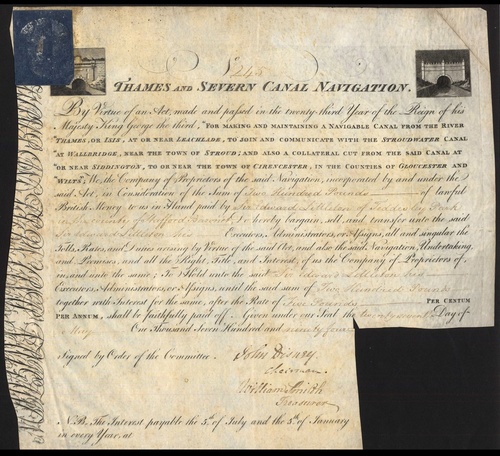 No. 245
THAMES AND SEVERN CANAL NAVIGATION.
By Virtue of an Act, made and passed in the twenty-third Year of the Reign of his
Majesty King George the third, "FOR MAKING AND MAINTAINING A NAVIGABLE CANAL FROM THE RIVER
"THAMES, OR ISIS, AT OR NEAR LEACHLADE, TO JOIN AND COMMUNICATE WITH THE STROUDWATER CANAL
"AT WALLBRIDGE, NEAR THE TOWN OF STROUD; AND ALSO A COLLATERAL CUT FROM THE SAID CANAL AT
"OR NEAR SIDDINGTON, TO OR NEAR THE TOWN OF CIRENCESTER, IN THE COUNTIES OF GLOUCESTER AND
"WILTS", We, the Company of Proprietors of the said Navigation, incorporated by and under the
said Act, in Consideration of the Sum of Five Hundred Pounds of lawful
British Money to us in Hand paid by Sir Edward Littleton of
do hereby bargain, sell, and transfer unto the said
Sir Edward Littleton his Executors, Administrators, or Assigns, all and singular the
Tolls, Rates, and Dues arising by Virtue of the said Act, and also the said Navigation, Undertaking,
and Premises, and all the Right, Title, and Interest, of us the Company of Proprietors of,
in, and unto the same; To Hold unto the said Sir Edward Littleton his
Executors, Administrators, or Assigns, until the said sum of Five Hundred Pounds
together with Interest for the same, after the Rate of Five Pounds PER CENTUM
PER ANNUM, shall be faithfully paid off. Given under our Seal the Day of
May One Thousand Seven Hundred and ninety four
Signed by Order of the Committee.
John Disney
Chairman
William Smith
Treasurer
N.B. The Interest payable the 5th of July and the 5th of January
in every Year, at